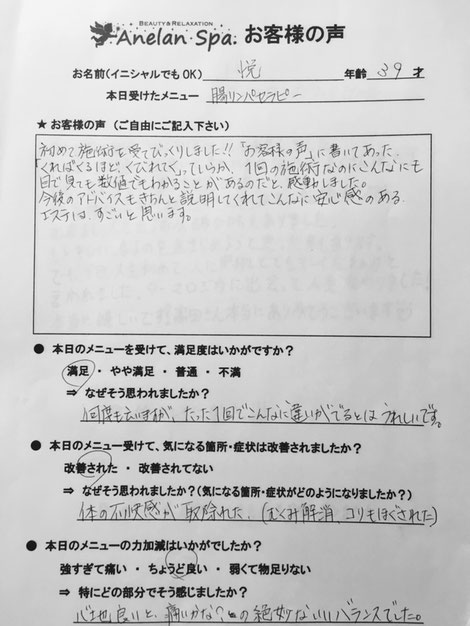 BEAUTY&RELAXATION
Anelan Spa. お客様の声
お名前(イニシャルでもOK) 悦 年齢 39 才
本日受けたメニュー 腸リンパセラピー
★ お客様の声 (ご自由にご記入下さい)
初めて施術を受てびっくりしました!! 「お客様の声」に書いてあった
「くればくるほど、くびれてく」っていうか、1回の施術なのにこんなにも
目で見ても数値でもわかることがあるのだと、感動しました。
今後のアドバイスもきちんと説明してくれてこんなに安心感のある
エステは、すごいと思います。
● 本日のメニューを受けて、満足度はいかがですか?
満足 ・ やや満足 ・ 普通 ・ 不満
⇒ なぜそう思われましたか?
何度も言いますが、たった1回でこんなに違いがでるとは うれしいです。
● 本日のメニュー受けて、気になる箇所・症状は改善されましたか?
改善された ・ 改善されてない
⇒ なぜそう思われましたか?(気になる箇所・症状がどのようになりましたか?)
体の不快感が 取除れた。(むくみ解消 コリもほぐされた)
● 本日のメニューの力加減はいかがでしたか?
強すぎて痛い ・ ちょうど良い ・ 弱くて物足りない
⇒ 特にどの部分でそう感じましたか?
心地良いと、痛いかな?との絶妙ないいバランスでした。